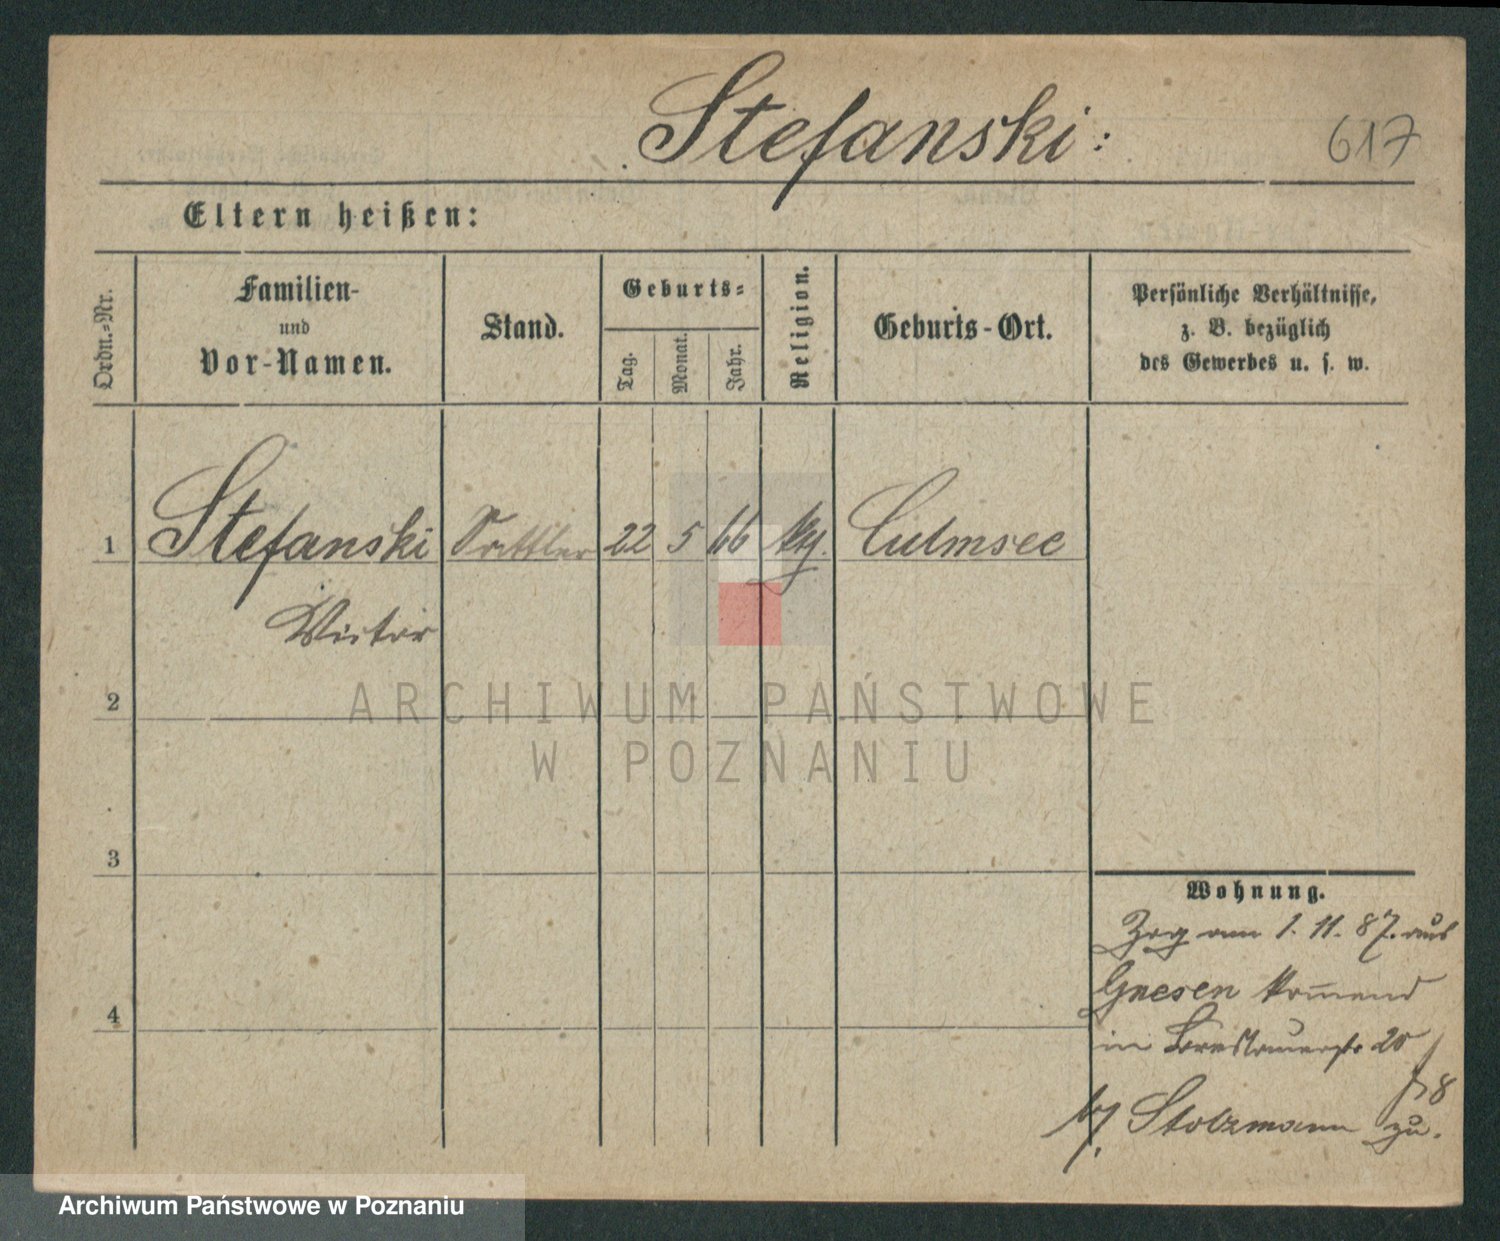 Stefanski:
617
Eltern heißen:
Ordn.-Nr.
Familien-
und
Vor-Namen.
Stand.
Geburts-
Tag.
Monat.
Jahr.
Religion.
Geburts-Ort.
Persönliche Verhältnisse,
z. B. bezüglich
des Gewerbes u. s. w.
1 Stefanski Sattler 22 5 66 Culmsee
Victor
2
ARCHIWUM PAŃSTWOWE
W POZNANIU
3
4
Wohnung.
Zog am 1. 11. 87. aus
Gnesen kom̅end
in Breslauerstr 20
8
Stolzmann zu.
Archiwum Państwowe w Poznaniu